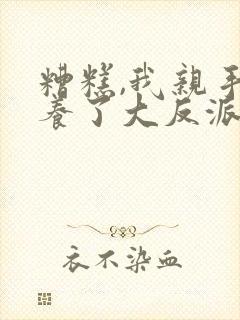 糟糕,我亲手
养了大反派
衣不染血